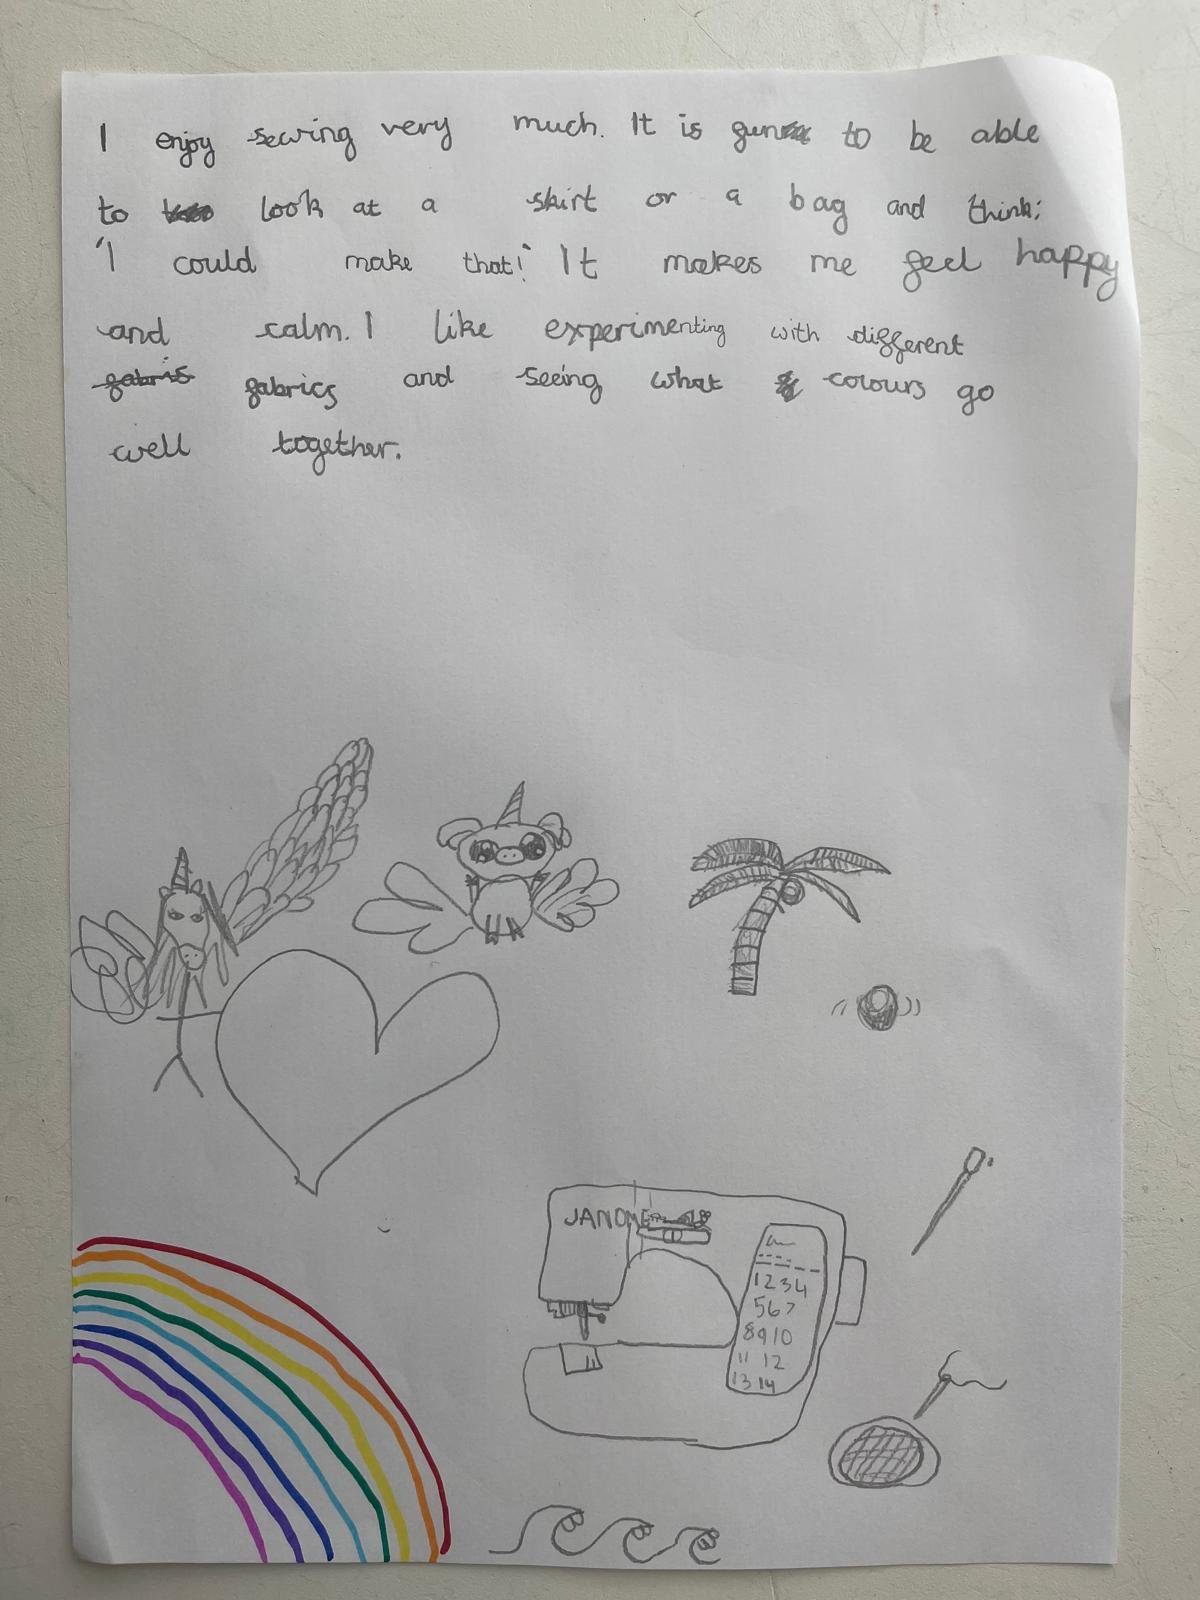 I enjoy sewing very much. It is fun to be able
to look at a skirt or a bag and think;
'I could make that!' It makes me feel happy
and calm. I like experimenting with different
fabris fabrics and seeing what colours go
well together.
JANOME
1 2 3 4
5 6 7
8 9 10
11 12
13 14